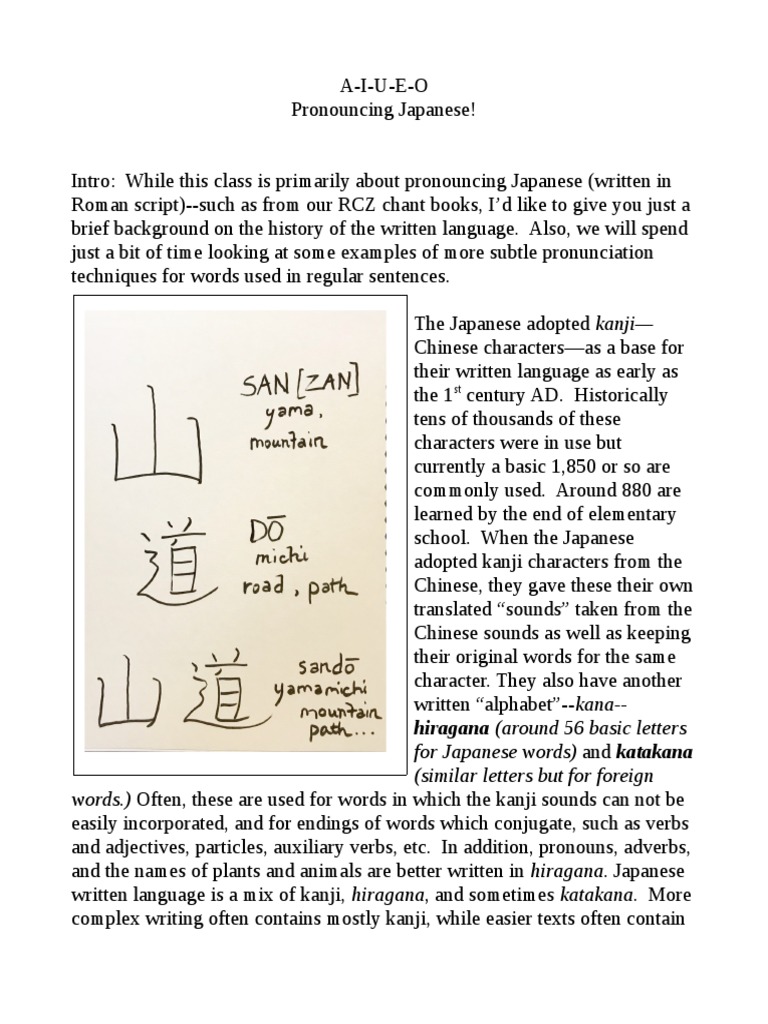 A-I-U-E-O
Pronouncing Japanese!
Intro:  While this class is primarily about pronouncing Japanese (written in
Roman script)--such as from our RCZ chant books, I’d like to give you just a
brief background on the history of the written language.  Also, we will spend
just a bit of time looking at some examples of more subtle pronunciation
techniques for words used in regular sentences.
山
SAN [ZAN]
yama,
mountain
道
DŌ
michi
road, path
山道
sandō
yamamichi
mountain
path...
The Japanese adopted kanji—
Chinese characters—as a base for
their written language as early as
the 1st century AD.  Historically
tens of thousands of these
characters were in use but
currently a basic 1,850 or so are
commonly used.  Around 880 are
learned by the end of elementary
school.  When the Japanese
adopted kanji characters from the
Chinese, they gave these their own
translated “sounds” taken from the
Chinese sounds as well as keeping
their original words for the same
character. They also have another
written “alphabet”--kana--
hiragana (around 56 basic letters
for Japanese words) and katakana
(similar letters but for foreign
words.) Often, these are used for words in which the kanji sounds can not be
easily incorporated, and for endings of words which conjugate, such as verbs
and adjectives, particles, auxiliary verbs, etc.  In addition, pronouns, adverbs,
and the names of plants and animals are better written in hiragana. Japanese
written language is a mix of kanji, hiragana, and sometimes katakana.  More
complex writing often contains mostly kanji, while easier texts often contain